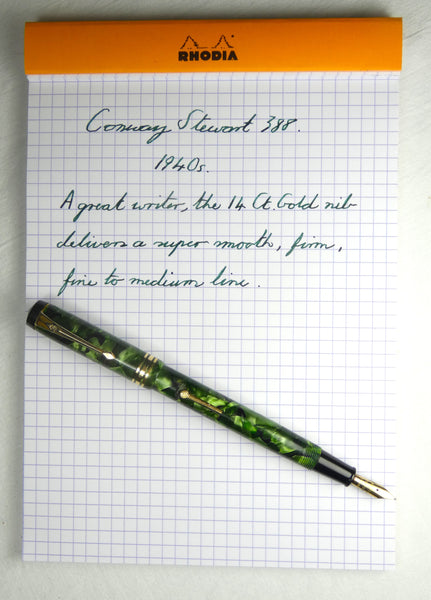 RHODIA
Conway Stewart 388.
1940s.
A great writer, the 14 Ct. Gold nib
delivers a super smooth, firm,
fine to medium line.